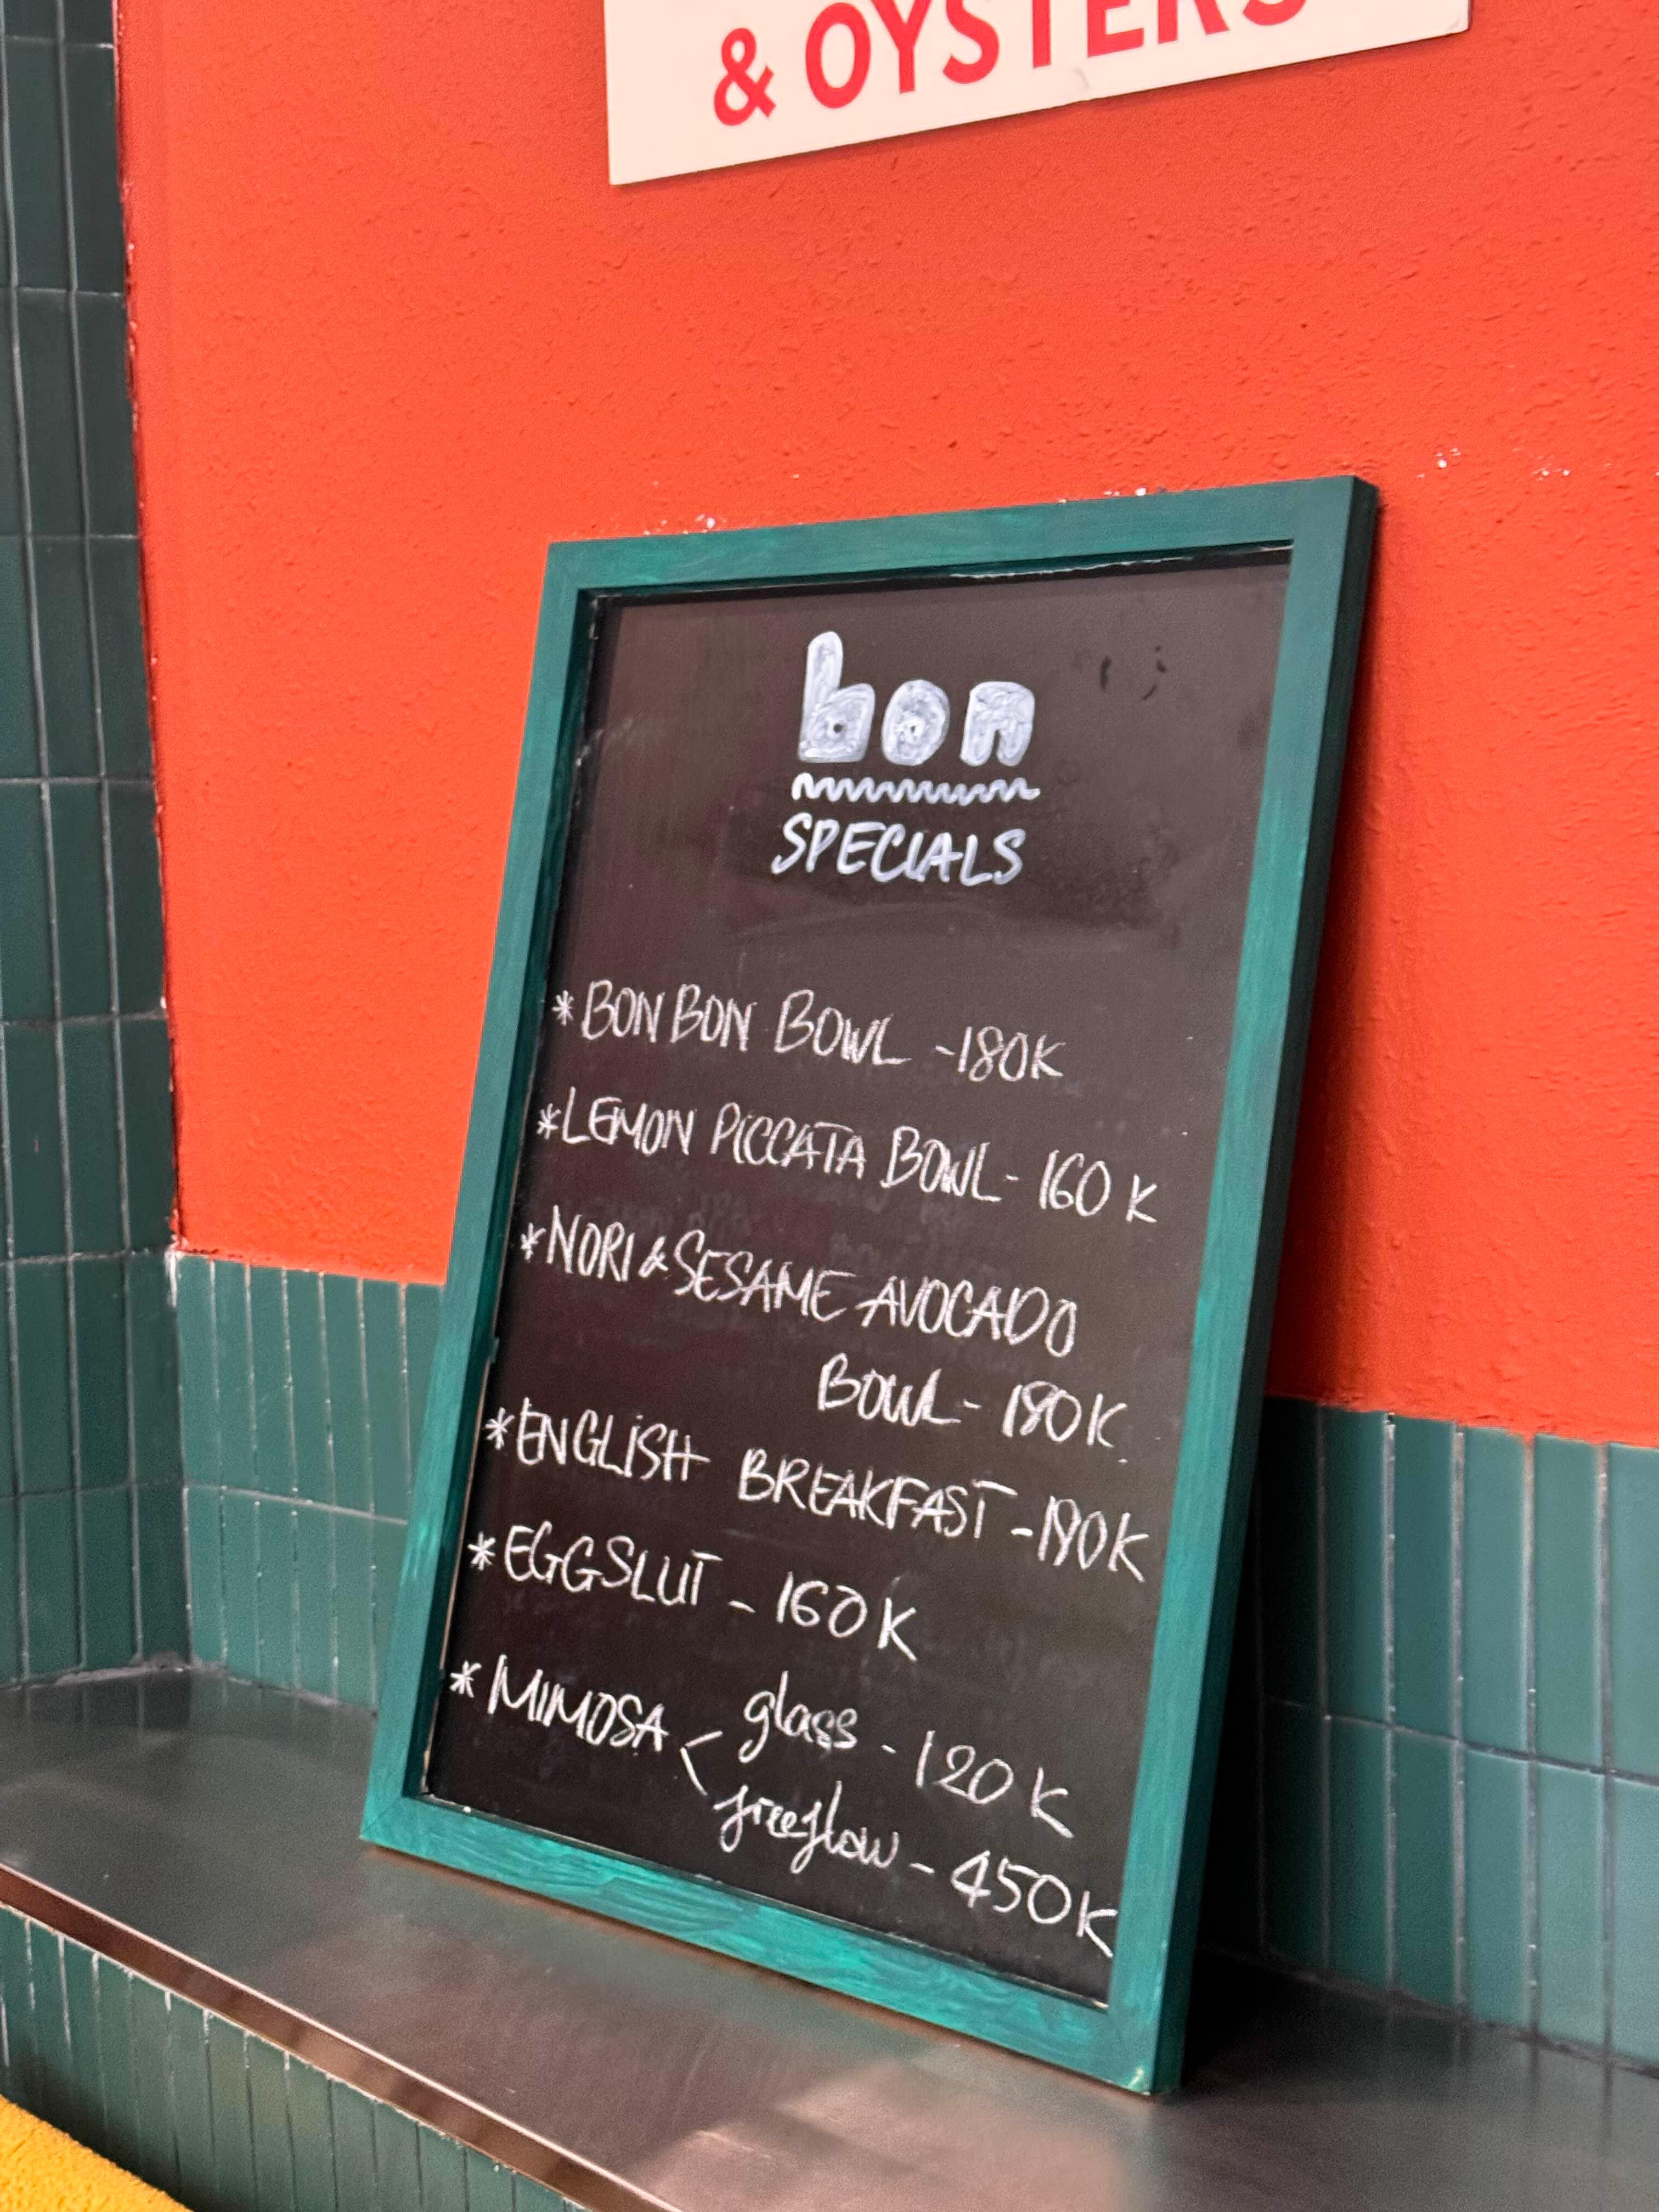 & OYSTERS
bon
SPECIALS
* BON BON BOWL - 180K
* LEMON PICCATA BOWL - 160 K
* NORI & SESAME AVOCADO
BOWL - 180K
* ENGLISH BREAKFAST - 190K
* EGGSLUT - 160K
* MIMOSA < glass - 120 K
freeflow - 450K